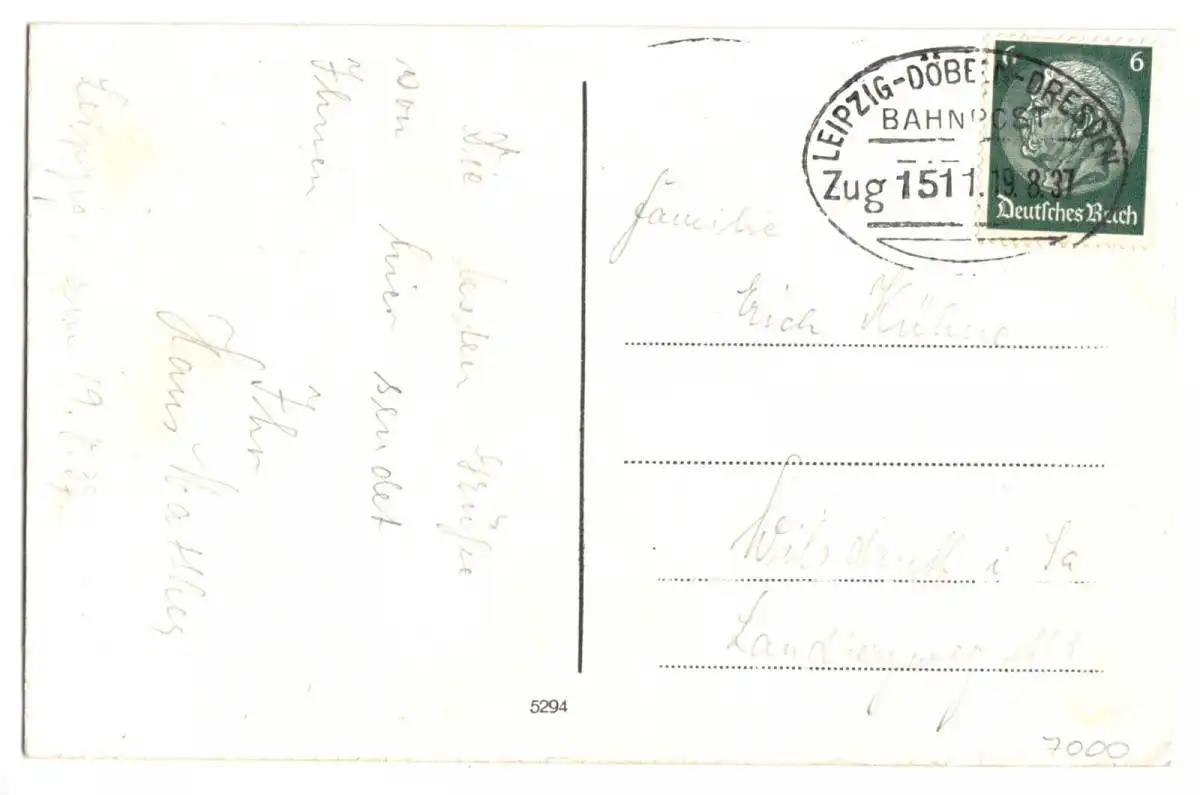 Leipzig am 19.8.37
Die besten Grüße
von hier sendet
Ihnen
Ihr
Hans
LEIPZIG-DÖBELN-DRESDEN
BAHNPOST
Zug 1511. 19.8.37
6 6
Deutsches Reich
Familie
Erich Kühne
Wilsdruff i Sa
5294
7000